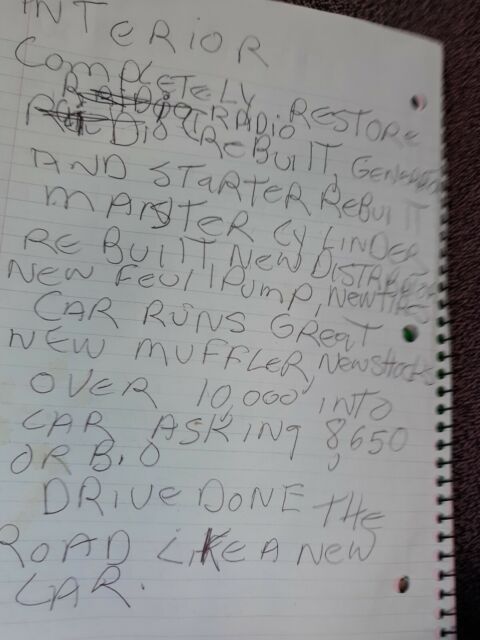 INTERIOR
COMPLETELY RESTORE
RADIO
REBUILT, GENERATOR
AND STARTER REBUILT
MASTER CYLINDER
REBUILT NEW DISTRIBUTOR
NEW FEULL PUMP, NEW TIRES
CAR RUNS GREAT
NEW MUFFLER, NEW SHOCKS
OVER 10,000 INTO
CAR ASKING 8,650
OR B.O
DRIVE DONE THE
ROAD LIKE A NEW
CAR.